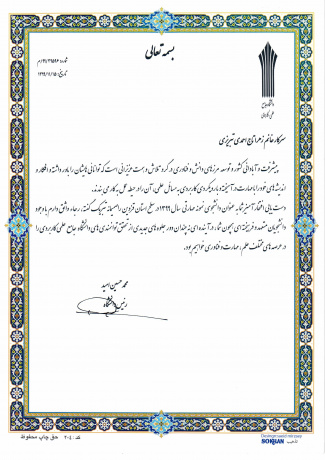 بسمه تعالی
دانشگاه جامع
علمی کاربردی
سرکار خانم زهرا تاج احمدی تبریزی
پیشرفت و آبادانی کشور و توسعه مرزهای دانش و فناوری در گرو تلاش و همت عزیزانی است که توانایی هایشان را باور داشته و افکار و
اندیشه های خود را با مهارت در آمیخته و با رویکردی کاربردی به مسائل علمی، آن را در حیطه عمل به کار می بندند.
دست یابی افتخار آمیز شما به عنوان دانشجوی نمونه مهارتی سال ۱۳۹۹ در سطح استان قزوین را صمیمانه تبریک گفته، رجاء واثق دارم با وجود
دانشجویان متعهد و فرهیخته ای همچون شما، در آینده ای نه چندان دور جلوه های جدیدی از تحقق توانمندی های دانشگاه جامع علمی کاربردی را
در عرصه های مختلف علم، مهارت و فناوری خواهیم بود.
محمد حسین امید
رئیس دانشگاه
کد: ۲۰۴ حق چاپ محفوظ